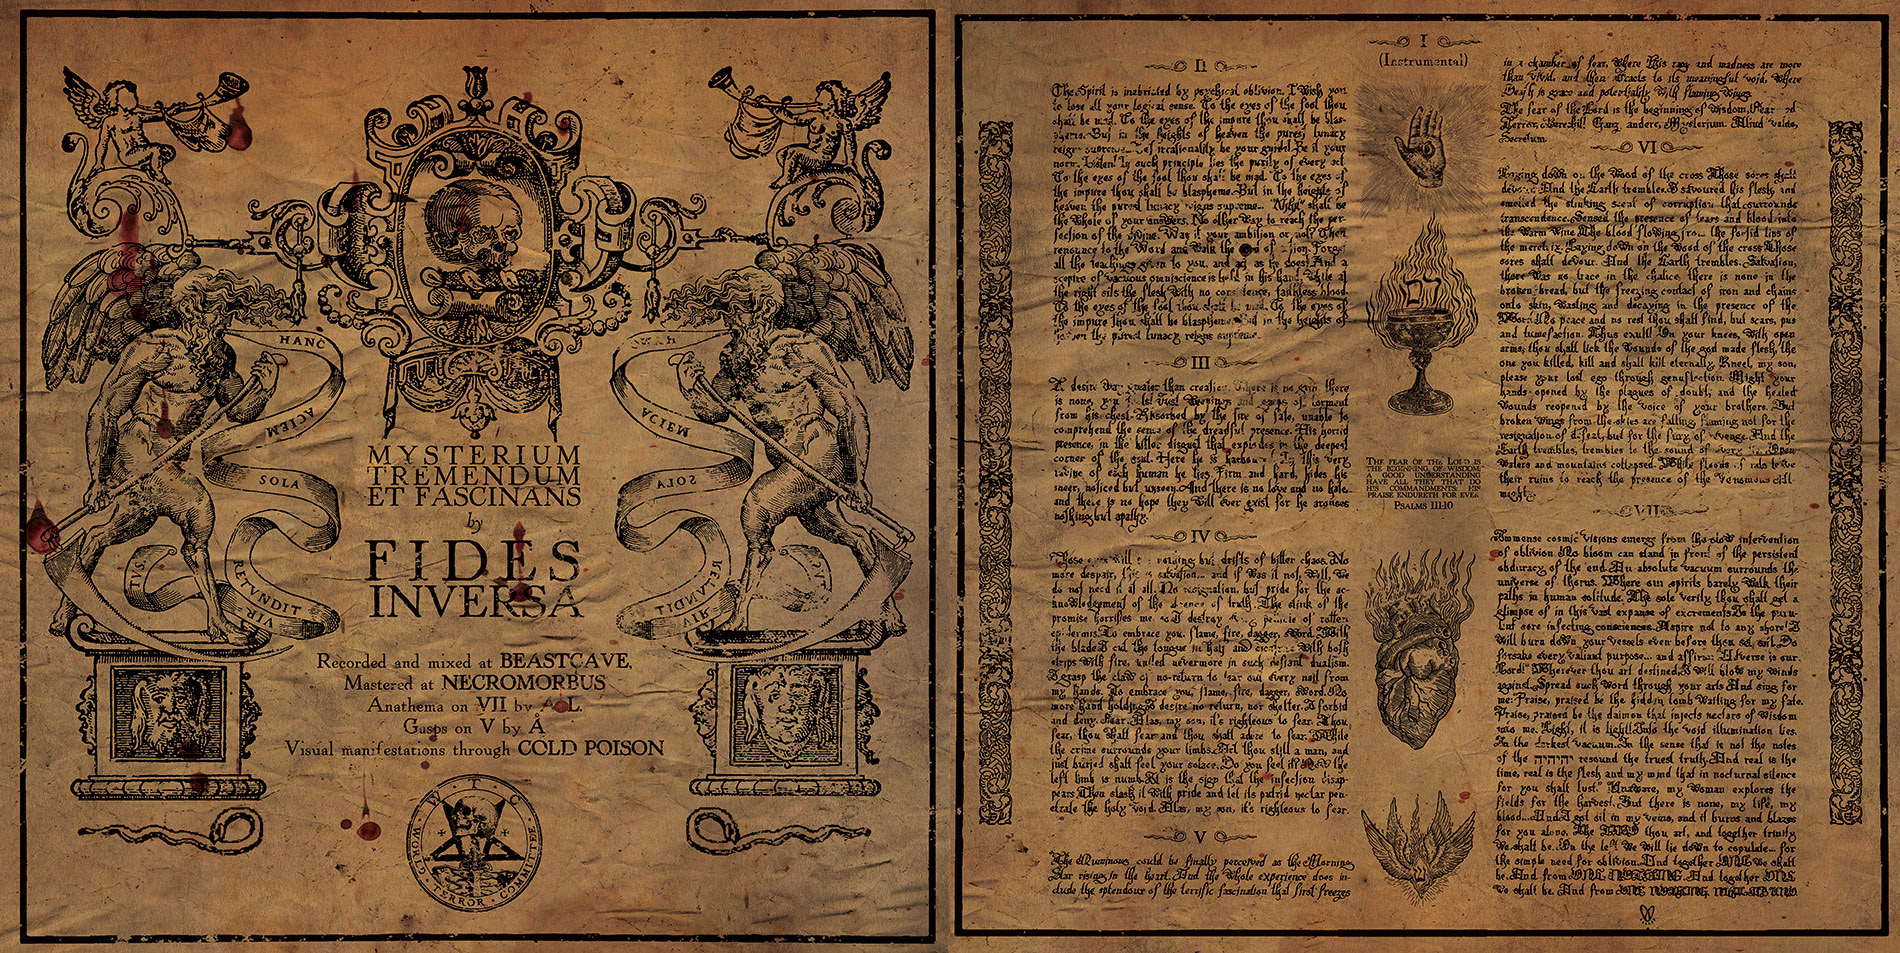 HANC
ACIEM
SOLA
RETVNDIT
VIR
MYSTERIUM
TREMENDUM
ET FASCINANS
by
FIDES
INVERSA
Recorded and mixed at BEASTCAVE,
Mastered at NECROMORBUS
Anathema on VII by
Gasps on V by Å
Visual manifestations through COLD POISON
W · T · C
WORLD · TERROR · COMMITTEE
I
(Instrumental)
II
The Spirit is inebriated by psychical oblivion. I wish you
to lose all your logical sense. To the eyes of the fool thou
shall be mad. To the eyes of the impure thou shall be blas-
pheme. But in the heights of heaven the purest lunacy
reigns supreme. Let irrationality be your guide. Be it your
norm. Listen! In such principle lies the purity of every act
To the eyes of the fool thou shall be mad. To the eyes of
the impure thou shall be blaspheme. But in the heights of
heaven the purest lunacy reigns supreme... "Why" shall be
the whole of your answers. No other way to reach the per-
fection of the divine. Was it your ambition or not? Then
renounce to the Word and walk the of Forget
all the teachings given to you, and act as he does. And a
sceptre of vacuous omniscience is held in his hand, while at
the right sits the flesh with no faithless blood.
To the eyes of the fool thou shall be mad. To the eyes of
the impure thou shall be blaspheme. But in the heights of
heaven the purest lunacy reigns supreme...
III
A desire was greater than creation. There is no grin, there
is none, you just weepings and of torment
from his chest. Absorbed by the fire of fate, unable to
comprehend the sense of the dreadful presence. His horrid
presence, in the bitter disgust that explodes in the deepest
corner of the soul. Here he is In this very
ravine of each human he lies. Firm and hard, hides his
sneer, noticed but unseen. And there is no love and no hate.
and there is no hope they will ever exist for he arouses
nothing but apathy.
IV
Those will nothing but drifts of bitter chaos. No
more despair, salvation... and if was it not, well, we
do not need it at all. No resignation, but pride for the ac-
knowledgement of the absence of truth. The stink of the
promise horrifies me destroy of rotten
epidermis. To embrace you, flame, fire, dagger, sword. With
the blade I cut the tongue in half and With both
strips with fire, united nevermore in such defiant dualism.
I grasp the claw of no-return to tear out every nail from
my hands. To embrace you, flame, fire, dagger, sword. No
more hand holding. I desire no return, nor shelter. I forbid
and deny. Fear. Alas, my son, it's righteous to fear. Thou
fear, thou shalt fear and thou shall adore to fear. While
the crime surrounds your limbs. Art thou still a man, and
just buried shall feel your solace. Do you feel it? Now the
left limb is numb. It is the sign that the infection disap-
pears. Then slash it with pride and let its putrid nectar pen-
etrate the holy void. Alas, my son, it's righteous to fear.
V
The Numinous could be finally perceived as the Morning
Star rising in the heart. And the whole experience does in-
clude the splendour of the terrific fascination that first freezes
THE FEAR OF THE LORD IS
THE BEGINNING OF WISDOM
GOOD UNDERSTANDING
HAVE ALL THEY THAT DO
HIS COMMANDMENTS HIS
PRAISE ENDURETH FOR EVER.
PSALMS 111:10
in a chamber of fear, where His rage and madness are more
than vivid, and then tracts to its meaningful void, where
Death is grace and potentiality with flaming wings.
The fear of the Lord is the beginning of wisdom. Fear and
Terror, therewith! Ganz andere, Mysterium. Aliud valde,
Secretum.
VI
Laying down on the wood of the cross Those sores shall
devour. And the Earth trembles. I savoured his flesh, and
smelled the stinking scent of corruption that surrounds
transcendence. Sensed the presence of tears and blood into
the warm wine. The blood flowing from the forbid lips of
the meretrix. Laying down on the wood of the cross Those
sores shall devour. And the Earth trembles. Salvation,
there was no trace in the chalice, there is none in the
broken bread, but the freezing contact of iron and chains
onto skin, wasting and decaying in the presence of the
Word. No peace and no rest thou shall find, but scars, pus
and tumefaction. Thus exult! On your knees, with open
arms, thou shall lick the wounds of the god made flesh, the
one you killed, kill and shall kill eternally. Kneel, my son,
please your lost ego through genuflection. Might your
hands opened by the plagues of doubt, and the healed
wounds reopened by the voice of your brothers. But
broken wings from the skies are falling, flaming not for the
resignation of defeat, but for the fury of revenge. And the
Earth trembles, trembles to the sound of every lie. Open
waters and mountains collapsed. While floods of
their ruins to reach the presence of the venomous all-
might.
VII
Immense cosmic visions emerge from the slow intervention
of oblivion. No bloom can stand in front of the persistent
obduracy of the end. An absolute vacuum surrounds the
universe of thorns. Where our spirits barely walk their
paths in human solitude. The sole verity thou shall get a
glimpse of in this vast expanse of excrements. Is the puru-
lent sore infecting consciences. Aspire not to any shore! I
will burn down your vessels even before thou set sail. Do
forsake every valiant purpose... and affirm: Adverse is our
Lord! "Wherever thou art destined, I will blow my winds
against. Spread such word through your arts And sing for
me: Praise, praised be the hidden tomb waiting for my fate.
Praise, praised be the daimon that injects nectars of wisdom
into me. Light, it is light! Into the void illumination lies.
In the darkest vacuum. In the sense that is not the notes
of the יהיהיה resound the truest truth. And real is the
time, real is the flesh and my mind that in nocturnal silence
for you shall lust." Unaware, my woman explores the
fields for the harvest. But there is none, my life, my
blood... And I got oil in my veins, and it burns and blazes
for you alone. The TWO thou art, and together trinity
We shall be. On the left we will lie down to copulate... for
the simple need for oblivion. And together ONE we shall
be. And from ONE NOTHING. And together ONE
we shall be. And from ONE NOTHING,